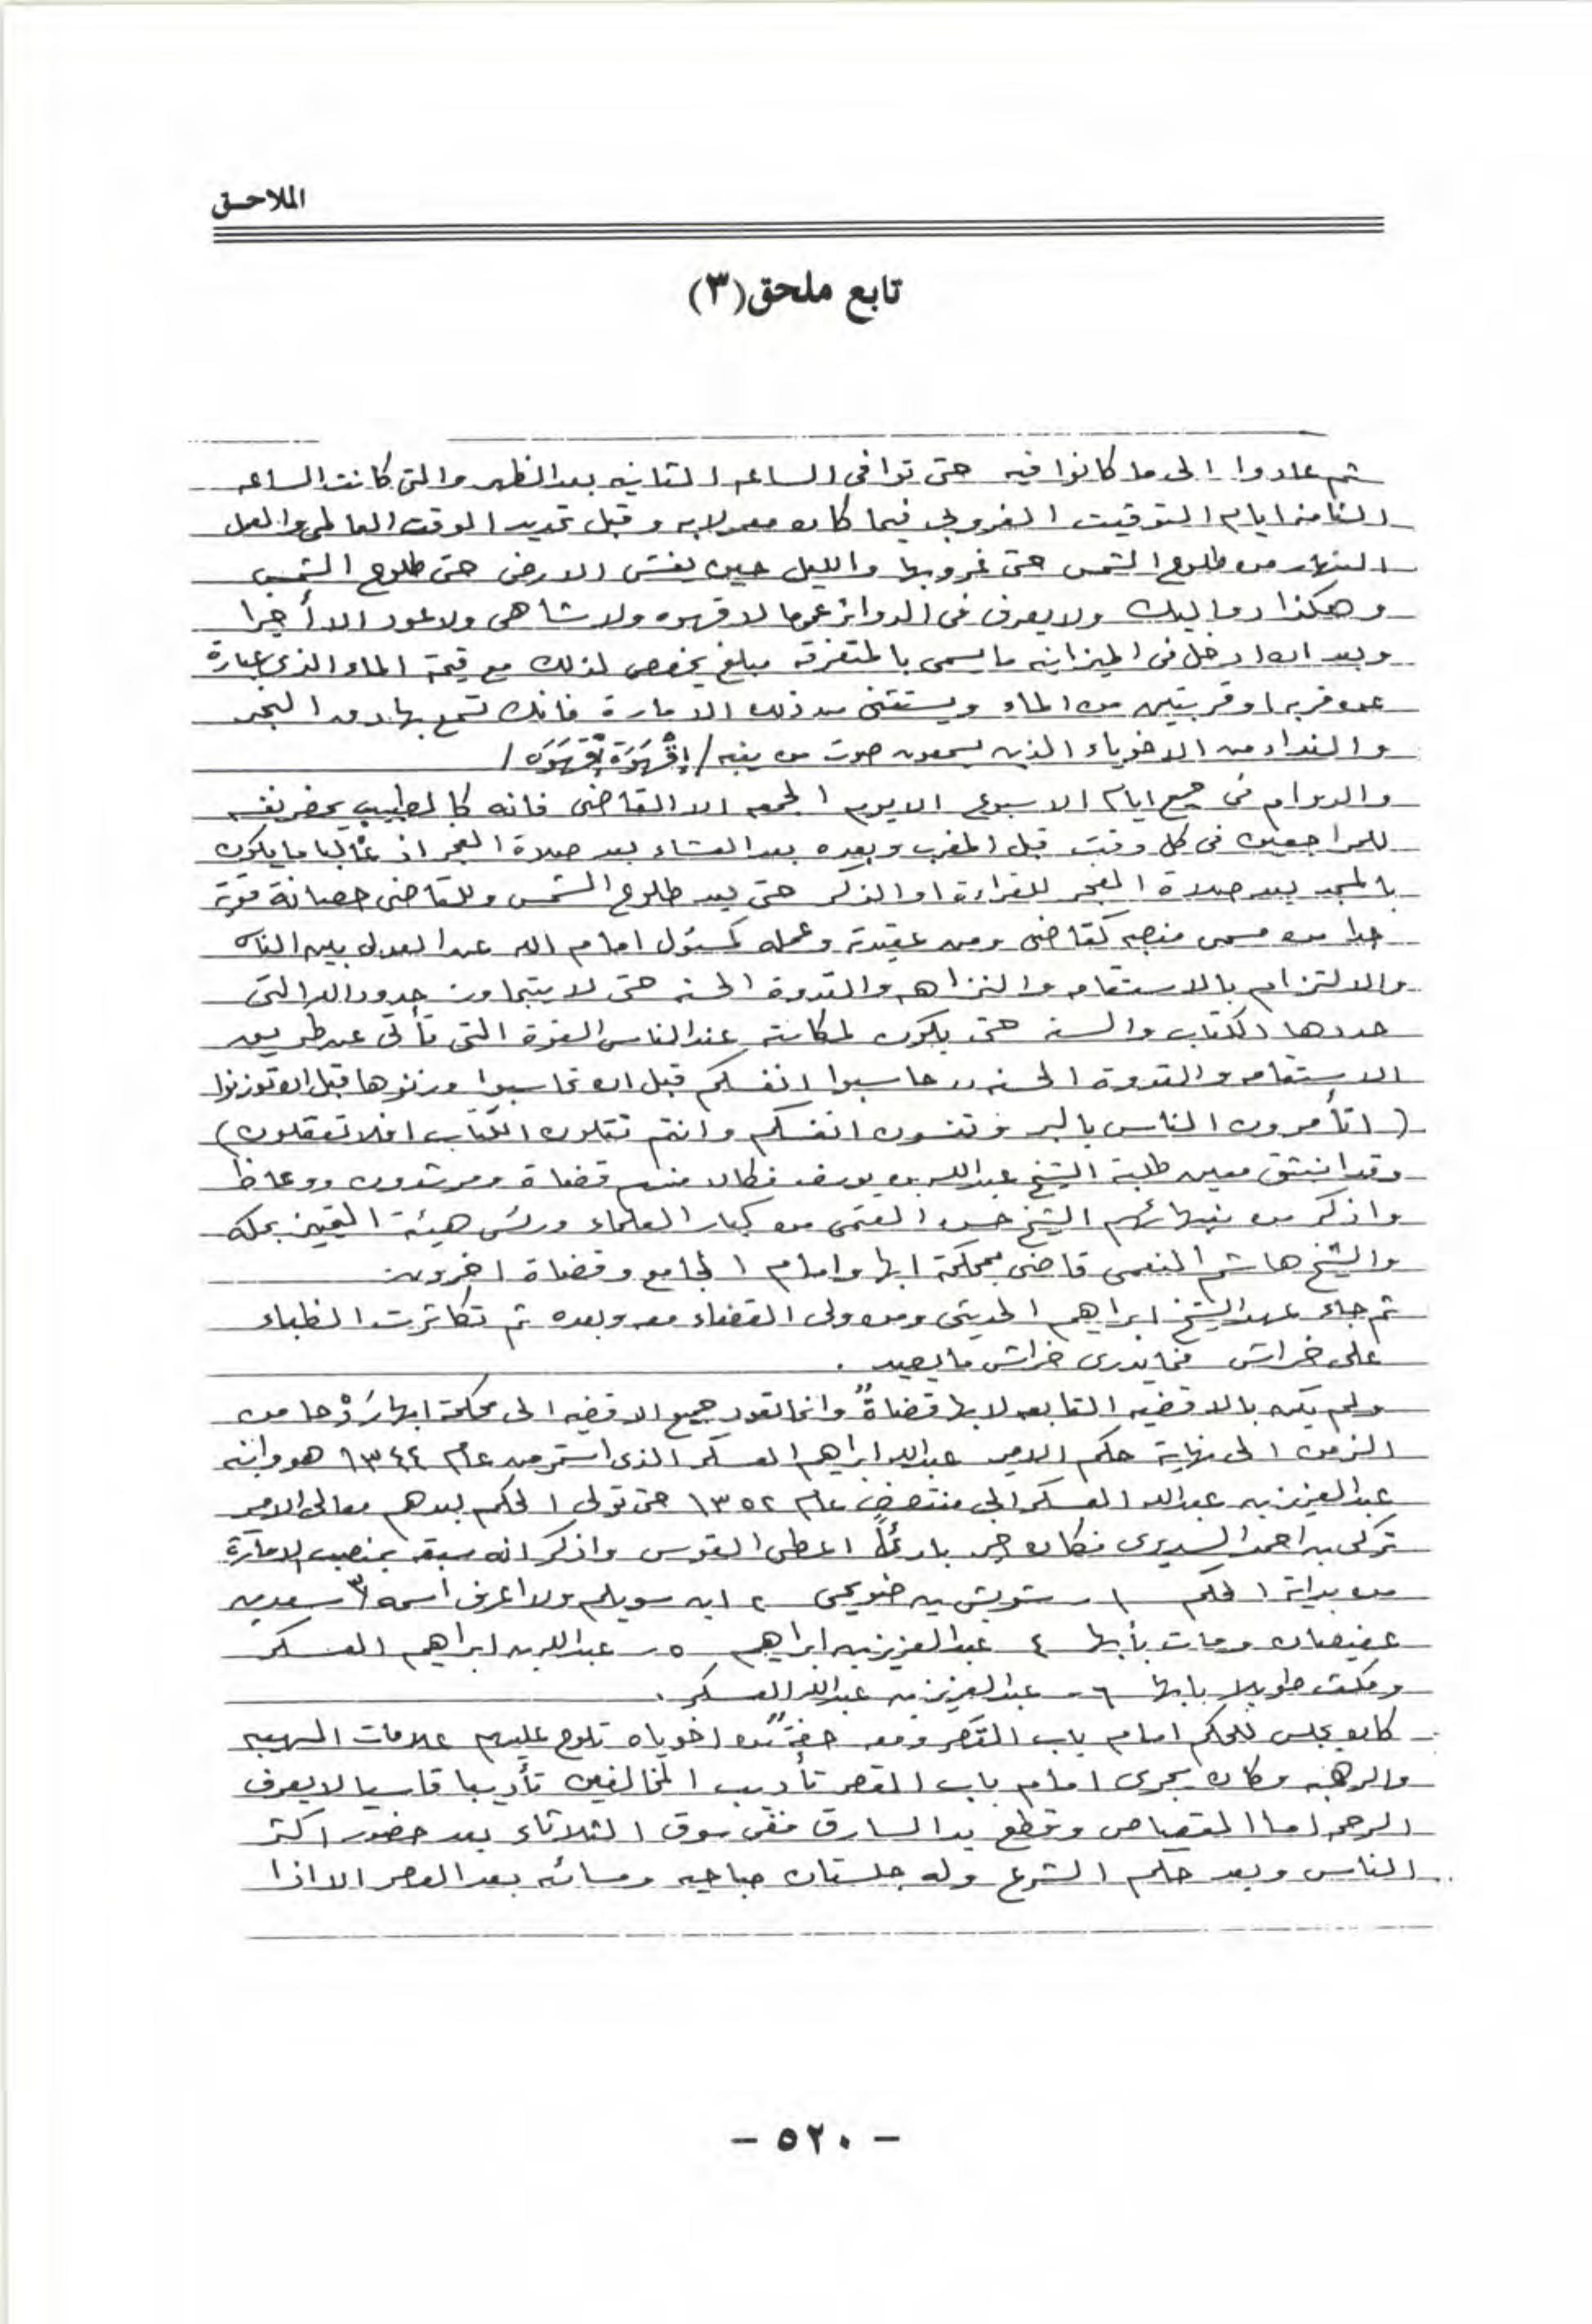 الملاحـق
تابع ملحق(٣)
ثم عادوا الى ما كانوا فيه حتى توافى الساعه الثانيه بعد الظهر والتى كانت الساعه
الثامنه ايام التوقيت الغروبى فيما كان معمولا به وقبل تحديد الوقت العالمى والعمل
النهار من طلوع الشمس حتى غروبها والليل حين يغشى الارض حتى طلوع الشمس
وهكذا دواليك ولا يعرف فى الدوائر عموما لا قهوه ولا شاهى ولا عود الا أخيرا
وبعد ان ادخل فى الميزانيه ما يسمى بالمتفرقه مبلغ يخصص لذلك مع قيمة الماء الذى عبارة
عن قربه او قربتين من الماء ويستثنى من ذلك الاماره فانك تسمع بها دق النجر
والنداء من الاخوياء الذين يسمعون صوت من ينبه / إقْهَوَهْ إقْهَوَهْ /
والدوام فى جميع ايام الاسبوع الا يوم الجمعه الا القاضى فانه كالطبيب يحضر نفسه
للمراجعين فى كل وقت قبل المغرب وبعده بعد العشاء بعد صلاة الفجر اذ غالبا ما يكون
بالمسجد بعد صلاة الفجر للقراءة او الذكر حتى بعد طلوع الشمس وللقاضى حصانة قوية
جدا من مسمى منصبه كقاضى ومن عقيدته وعمله كمسئول امام الله عن العدل بين الناس
والالتزام بالاستقامه والنزاهه والقدوة الحسنه حتى لا يتجاوز حدود الله التى
حددها الكتاب والسنه حتى يكون لمكانته عند الناس القوة التى تأتى عن طريق
الاستقامه والقدوة الحسنه ,, حاسبوا انفسكم قبل ان تحاسبوا وزنوها قبل ان توزنوا
( اتأمرون الناس بالبر وتنسون انفسكم وانتم تتلون الكتاب افلا تعقلون )
وقد انبثق معين طلبة الشيخ عبدالله بن يوسف فكان منهم قضاة ومرشدون ووعاظ
واذكر من نبهائهم الشيخ حسن العتمى من كبار العلماء ورئيس هيئة التمييز بمكه
والشيخ هاشم النعمى قاضى بمحكمة ابها وامام الجامع وقضاة اخرون
ثم جاء عهد الشيخ ابراهيم الحديثى ومن ولى القضاء معه وبعده ثم تكاثرت الظباء
على خراش فما يدرى خراش ما يصيد .
ولم يكن بالاقضيه التابعه لابها قضاةً وانما تعود جميع الاقضيه الى محكمة ابها رَدْحا من
الزمن الى نهاية حكم الامير عبدالله ابراهيم العسكر الذى استمر من عام ١٣٤٤ هو وابنه
عبدالعزيز بن عبدالله العسكر الى منتصف عام ١٣٥٢ حتى تولى الحكم بعدهم معالى الامير
تركى بن احمد السديرى فكان خير بادئاً اعطى القوس واذكر انه سبقه بمنصب الامارة
من بداية الحكم ١ - شويش بن ضويحى ٢ ابن سويلم ولا اعرف اسمه ٣/ سعد بن
عفيصان ومات بأبها ٤ عبدالعزيز بن ابراهيم ٥ - عبدالله بن ابراهيم العسكر
ومكث طويلا بابها ٦ - عبدالعزيز بن عبدالله العسكر .
كان يجلس للحكم امام باب القصر ومعه من اخوياه تلوح عليهم علامات الهيبه
والرهبه وكان يجرى امام باب القصر تأديب المخالفين تأديبا قاسيا لا يعرف
الرحمه اما القصاص وقطع يد السارق ففى سوق الثلاثاء بعد حضور اكثر
الناس وبعد حكم الشرع وله جلستان صباحيه ومسائه بعد العصر الا اذا
- ٥٢٠ -